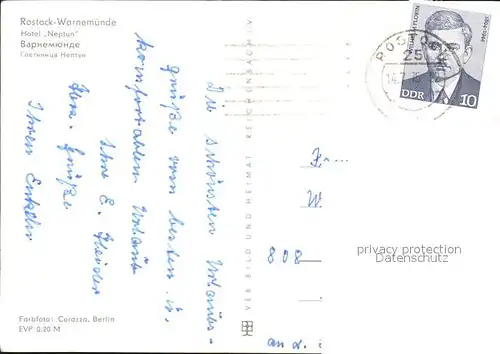 Rostock-Warnemünde
Hotel „Neptun"
Варнемюнде
Гостиница Нептун
Die schönsten Urlaubs-
grüße vom besten u.
komfortablem Urlaub
Ihre E.
Herz. Grüße
Ihren
Farbfoto: Corazza, Berlin
EVP 0,20 M
VEB BILD UND HEIMAT REICHENBACH I.V.
WILHELM FLORIN
DDR
10
25
808
an d.
privacy protection
Datenschutz